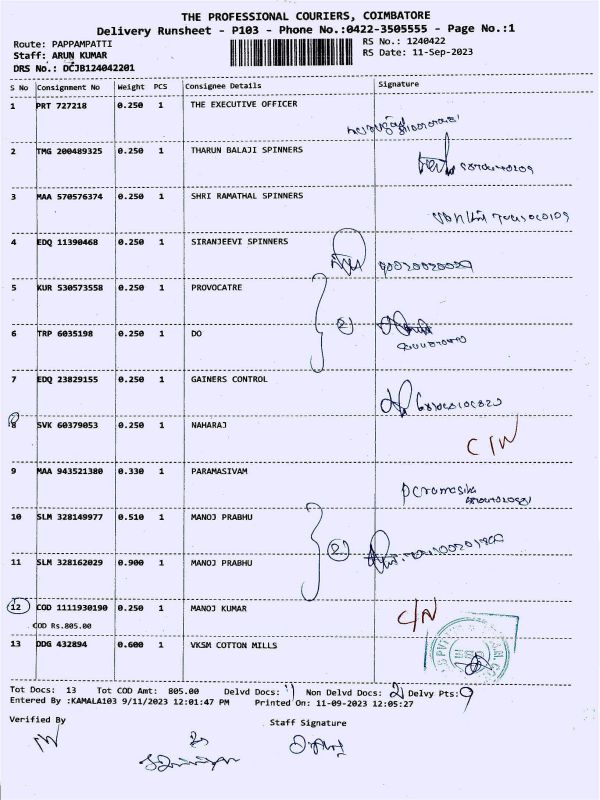 THE PROFESSIONAL COURIERS, COIMBATORE
Delivery Runsheet - P103 - Phone No.:0422-3505555 - Page No.:1
Route: PAPPAMPATTI RS No.: 1240422
Staff: ARUN KUMAR RS Date: 11-Sep-2023
DRS No.: DCJB124042201
S No Consignment No Weight PCS Consignee Details Signature
1 PRT 727218 0.250 1 THE EXECUTIVE OFFICER
2 TMG 200489325 0.250 1 THARUN BALAJI SPINNERS
3 MAA 570576374 0.250 1 SHRI RAMATHAL SPINNERS
4 EDQ 11390468 0.250 1 SIRANJEEVI SPINNERS
5 KUR 530573558 0.250 1 PROVOCATRE
6 TRP 6035198 0.250 1 DO 2
7 EDQ 23829155 0.250 1 GAINERS CONTROL
8 SVK 60379053 0.250 1 NAHARAJ C/N
9 MAA 943521380 0.330 1 PARAMASIVAM
10 SLM 328149977 0.510 1 MANOJ PRABHU
2
11 SLM 328162029 0.900 1 MANOJ PRABHU
12 COD 1111930190 0.250 1 MANOJ KUMAR C/N
COD Rs.805.00
13 DDG 432894 0.600 1 VKSM COTTON MILLS
Tot Docs: 13 Tot COD Amt: 805.00 Delvd Docs: 11 Non Delvd Docs: 2 Delvy Pts: 9
Entered By :KAMALA103 9/11/2023 12:01:47 PM Printed On: 11-09-2023 12:05:27
Verified By Staff Signature